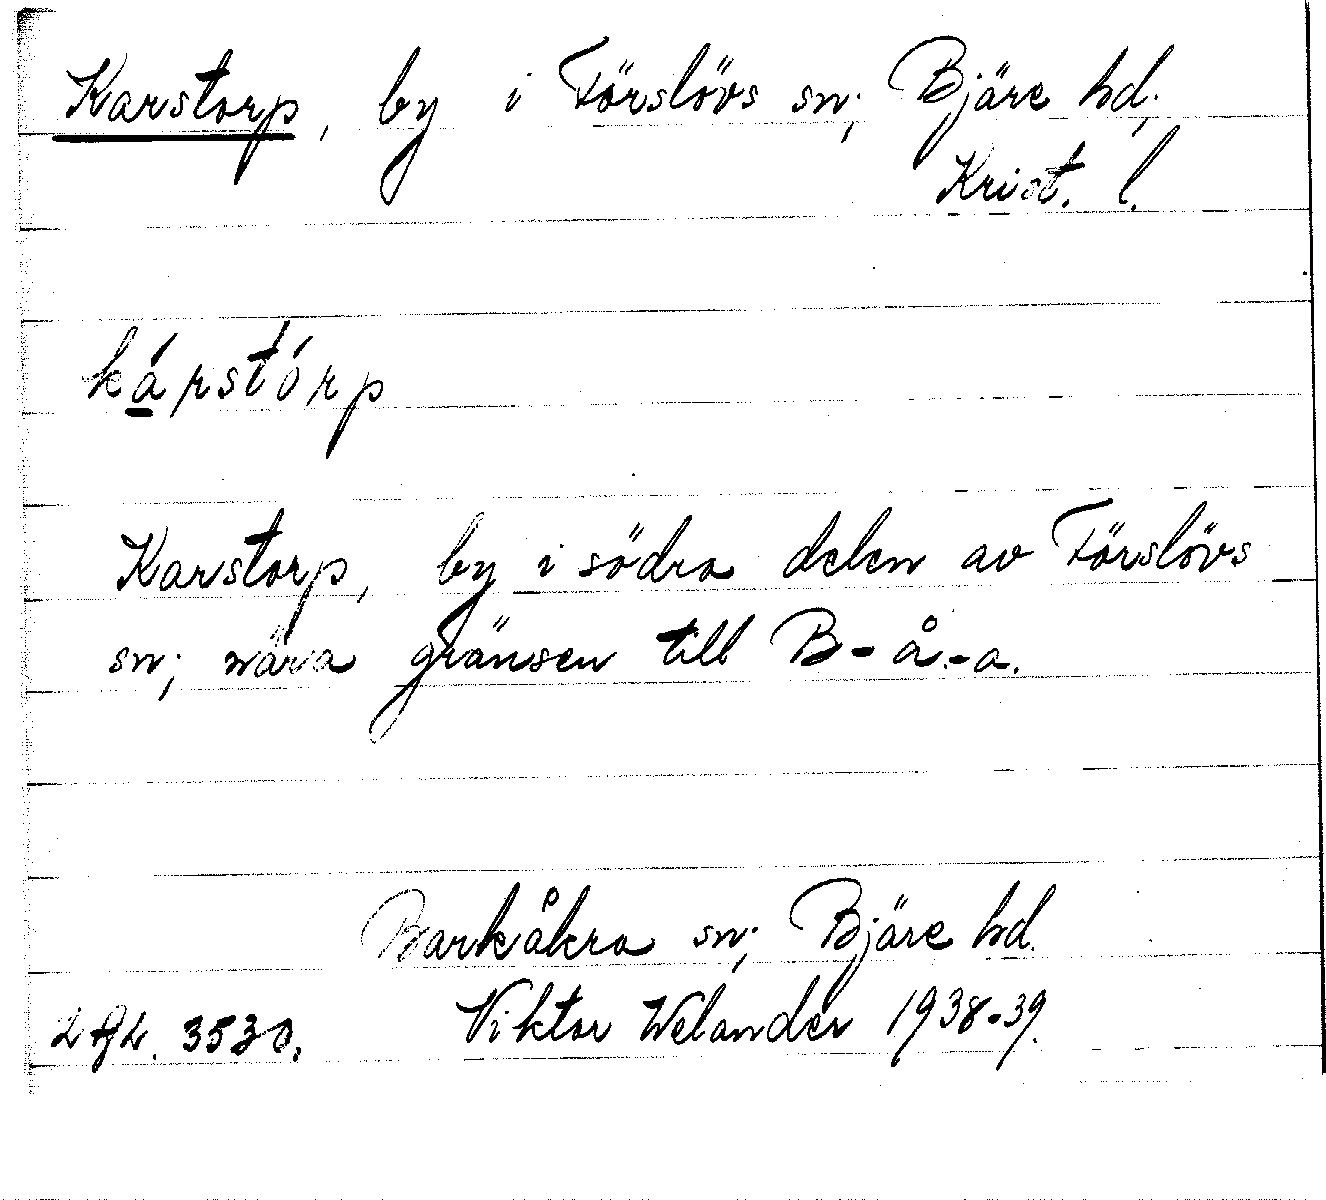 Karstorp, by i Förslövs sn; Bjäre hd;
Krist. l.
kárstórp
Karstorp, by i södra delen av Förslövs
sn; nära gränsen till B-å.-a.
Barkåkra sn; Bjäre hd.
Viktor Welander 1938-39.
3530.